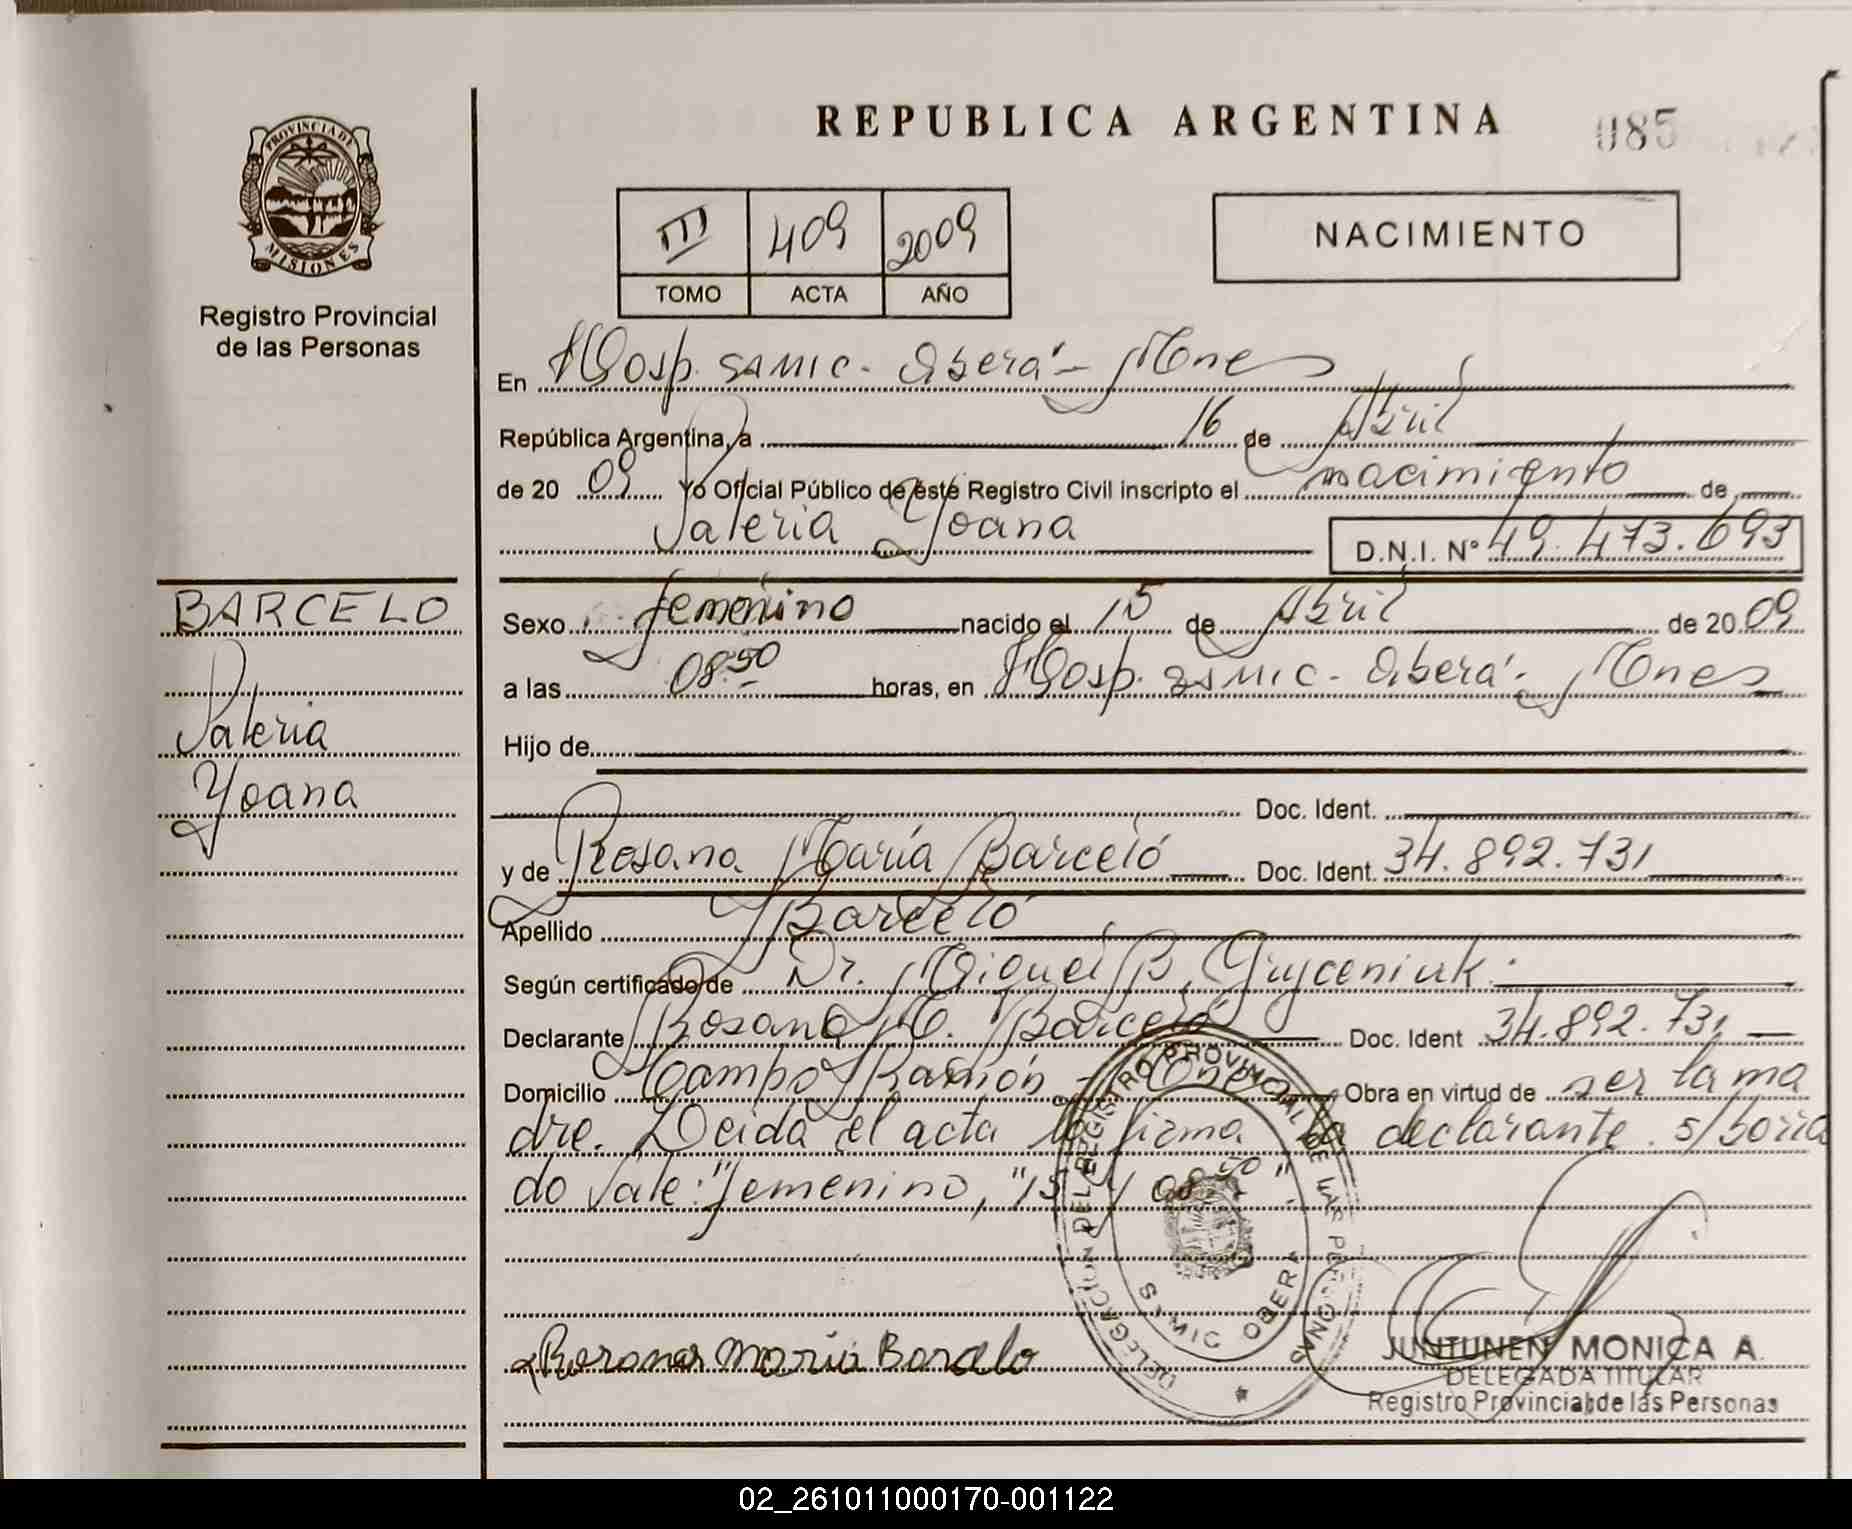 REPUBLICA ARGENTINA
085
PROVINCIA DE
MISIONES
Registro Provincial
de las Personas
III 409 2009
TOMO ACTA AÑO
NACIMIENTO
En Hosp. SAMIC. Oberá - Mnes
República Argentina, a 16 de Abril
de 20 09 Yo Oficial Público de este Registro Civil inscripto el nacimiento de
Valeria Yoana D.N.I. Nº 49.473.693
BARCELO
Valeria
Yoana
Sexo femenino nacido el 15 de Abril de 20 09
a las 08:50 horas, en Hosp. SAMIC. Oberá - Mnes
Hijo de
Doc. Ident.
y de Rosana María Barceló Doc. Ident. 34.892.731
Apellido Barceló
Según certificado de Dr. Miguel B.
Declarante Rosana M. Barceló Doc. Ident 34.892.731
Domicilio Campo Ramón - Mnes Obra en virtud de ser la ma
dre. Leida el acta la firma la declarante. s/borra
do Vale: "femenino, "15 y 08:50".
Rosana Maria Barcelo
DELEGACION DEL REGISTRO PROVINCIAL DE LAS PERSONAS
SAMIC OBERA
JUNTUNEN MONICA A.
DELEGADA TITULAR
Registro Provincial de las Personas
02_261011000170-001122